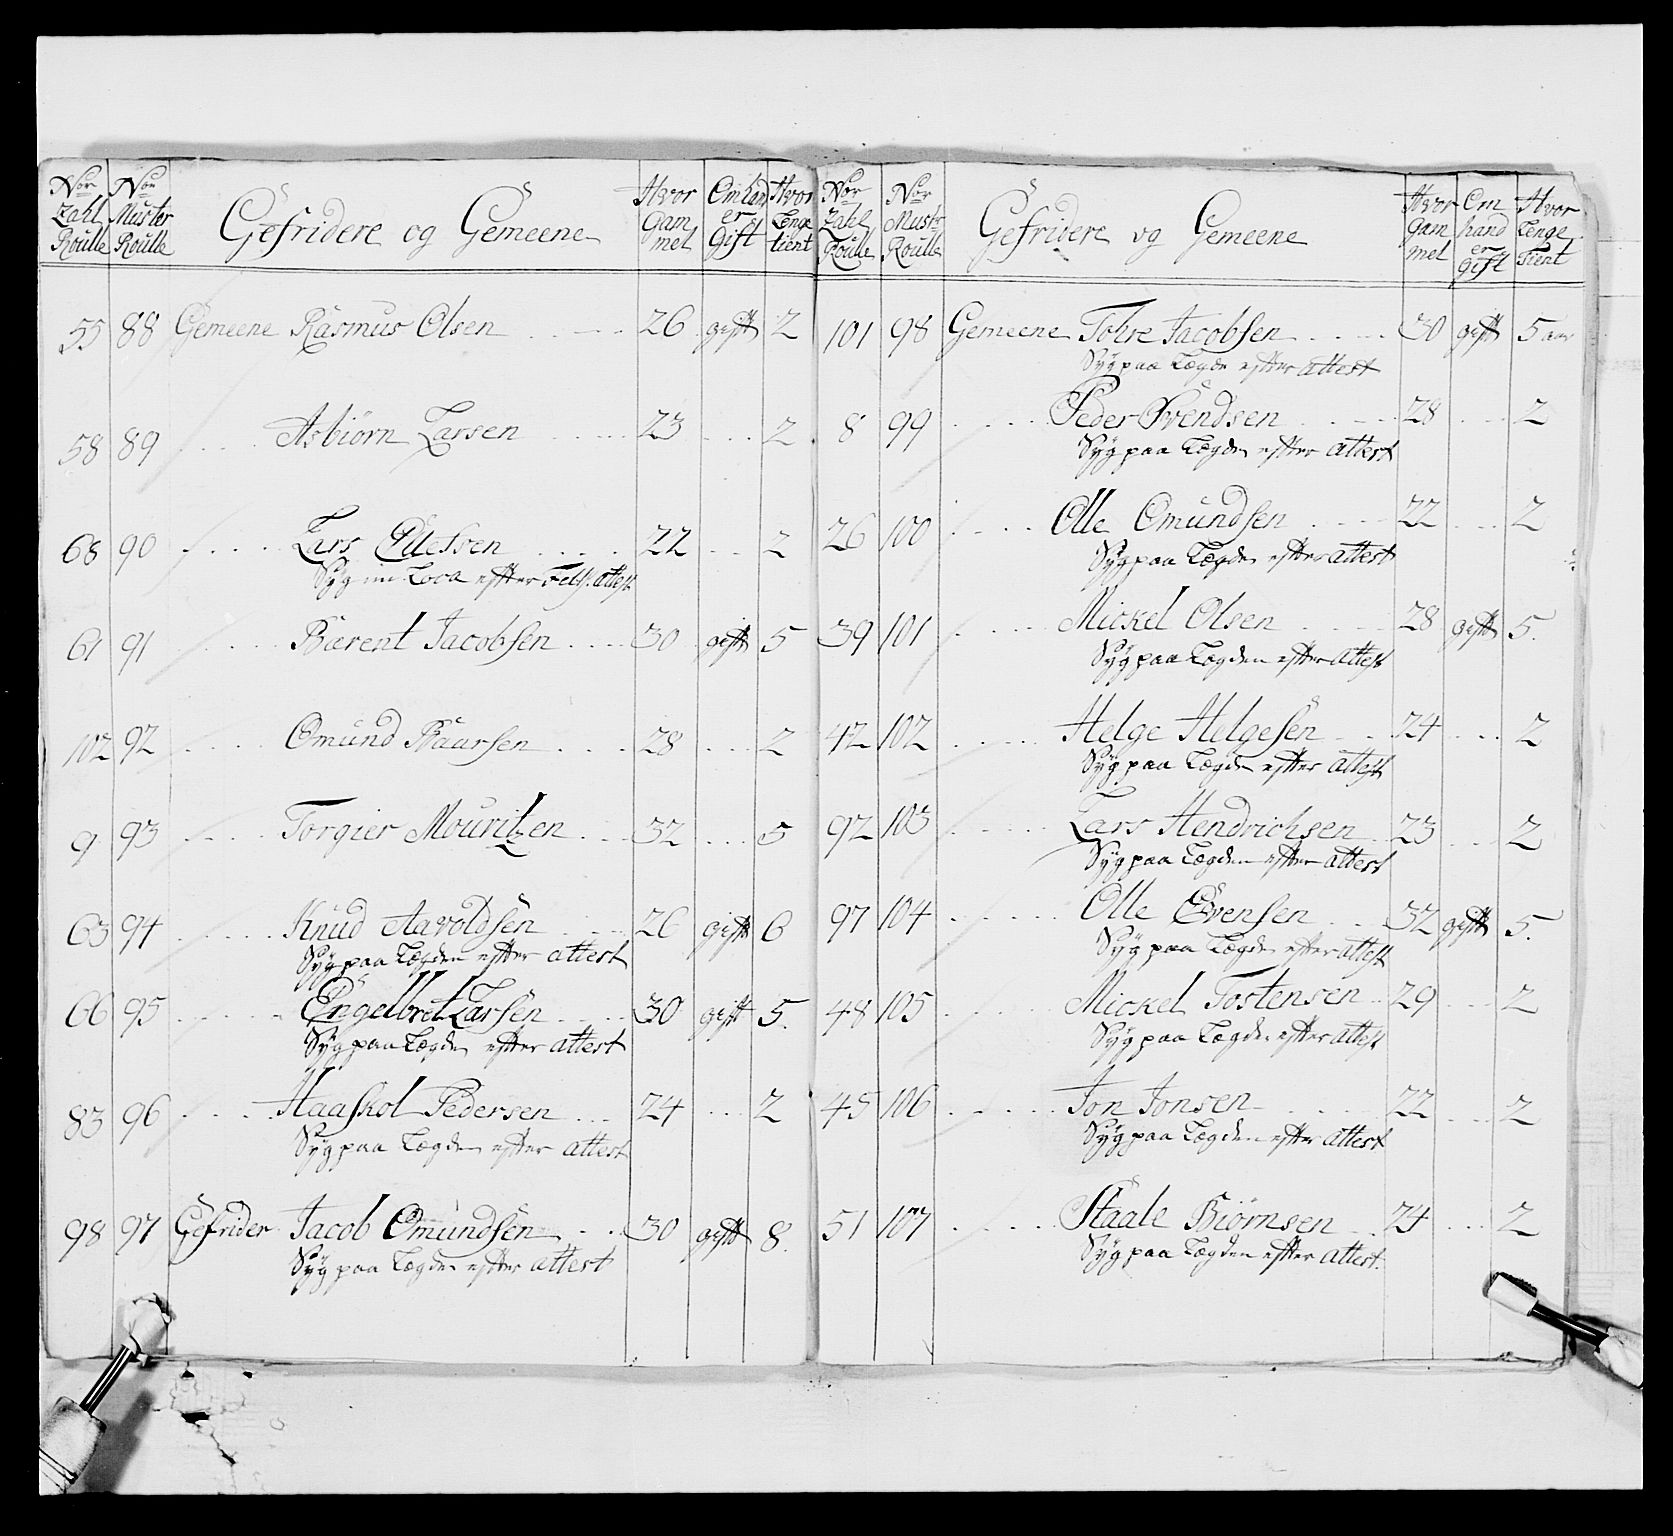 Nor Zahl Roulle | Nor Muster Roulle | Gefridere og Gemeene | Hvor Gam mel | Om han er Gift | Hvor Lenge tient
55 88 Gemeene Rasmus Olsen 26 gift 2
58 89 Asbiörn Larsen 23 2
68 90 Lars 22 2
Syg efter attest
61 91 Bärent Jacobsen 30 gift 5
102 92 Omund Baarsen 28 2
9 93 Torgier Mouritzen 32 5
63 94 Knud Aavoldsen 26 gift 6
Syg paa Lægden efter attest
66 95 Engelbret Larsen 30 gift 5.
Syg paa Lægden efter attest
83 96 Haaskol Pedersen 24 2
Syg paa Lægden efter attest
98 97 Gefrider Jacob Omundsen 30 gift 8.
Syg paa Lægden efter attest
Nor Zahl Roulle | Nor Must: Roulle | Gefridere og Gemeene | Hvor gam mel | Om hand er gift | Hvor Lenge Tient
101 98 Gemeene Tohre Jacobsen 30 gift 5 aar
Syg paa Lægde efter attest
8 99 Peder Svendsen 28 2
Syg paa Lægden efter attest
26 100 Olle Omundsen 22 2
Syg paa Lægden efter attest
39 101 Mickel Olsen 28 gift 5.
Syg paa Lægden efter attest
42 102 Helge Helgesen 24 2
Syg paa Lægden efter attest
92 103 Lars Hendrichsen 23 2
Syg paa Lægden efter attest
97 104 Olle Evensen 32 gift 5.
Syg paa Lægden efter attest
48 105 Mickel Tostensen 29 2
Syg paa Lægden efter attest
45 106 Jon Jonsen 22 2
Syg paa Lægden efter attest
51 107 Staale Biörnsen 24 2
Syg paa Lægden efter attest.